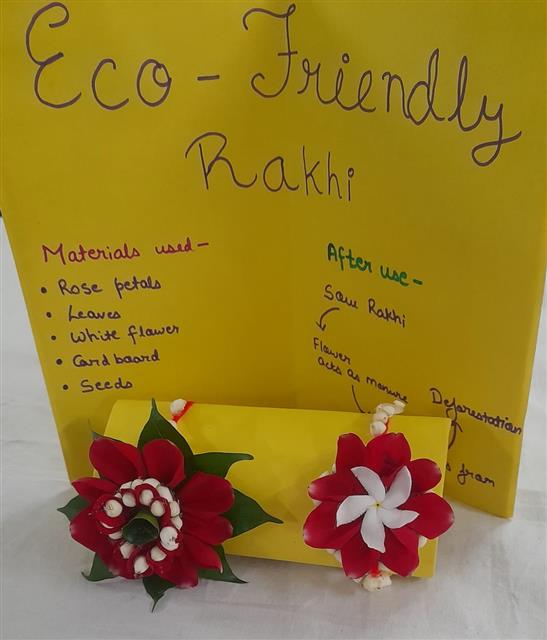 Eco-Friendly
Rakhi
Materials used-
• Rose petals
• Leaves
• White flower
• Cardboard
• Seeds
After use-
Sow Rakhi
Flower
acts as manure
Deforestation
from